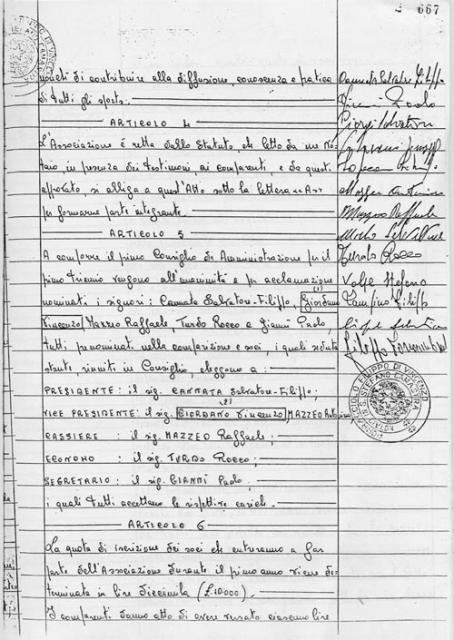 667
noncté di contribuire alla diffusione, conoscenza e pratica
di tutti gli sports.
ARTICOLO 4
L'Associazione è retta dallo Statuto, che letto da me No
taio, in presenza dei testimoni ai comparenti, e da questi
approvato, si allega a quest'Atto sotto la lettera "A"
per formarne parte integrante.
ARTICOLO 5
A comporre il primo Consiglio di Amministrazione per il
primo triennio vengono all'unanimità e per acclamazione
nominati i signori: Cannata Salvatore-Filippo, (Giordano
Vincenzo) Mazzeo Raffaele, Turdo Rocco e Giannì Paolo,
tutti prenominati nella comparizione e soci, i quali seduta
stante riuniti in Consiglio, eleggono a:
PRESIDENTE: il sig. CANNATA Salvatore-Filippo;
VICE PRESIDENTE: il sig. (GIORDANO Vincenzo) MAZZEO Antonino
CASSIERE : il sig. MAZZEO Raffaele;
ECONOMO : il sig. TURDO Rocco;
SEGRETARIO : il sig. GIANNÌ Paolo,
i quali tutti accettano le rispettive cariche.
ARTICOLO 6
La quota di iscrizione dei soci che entreranno a far
parte dell'Associazione durante il primo anno viene de
terminata in lire diecimila (£.10000).
I comparenti danno atto di avere versato ciascuno lire
Cannata Salvatore Filippo
Giannì Paolo
Giorgi Salvatore
Mazzeo Antonino
Mazzeo Raffaele
Turdo Rocco
Volpe Stefano
Filippo